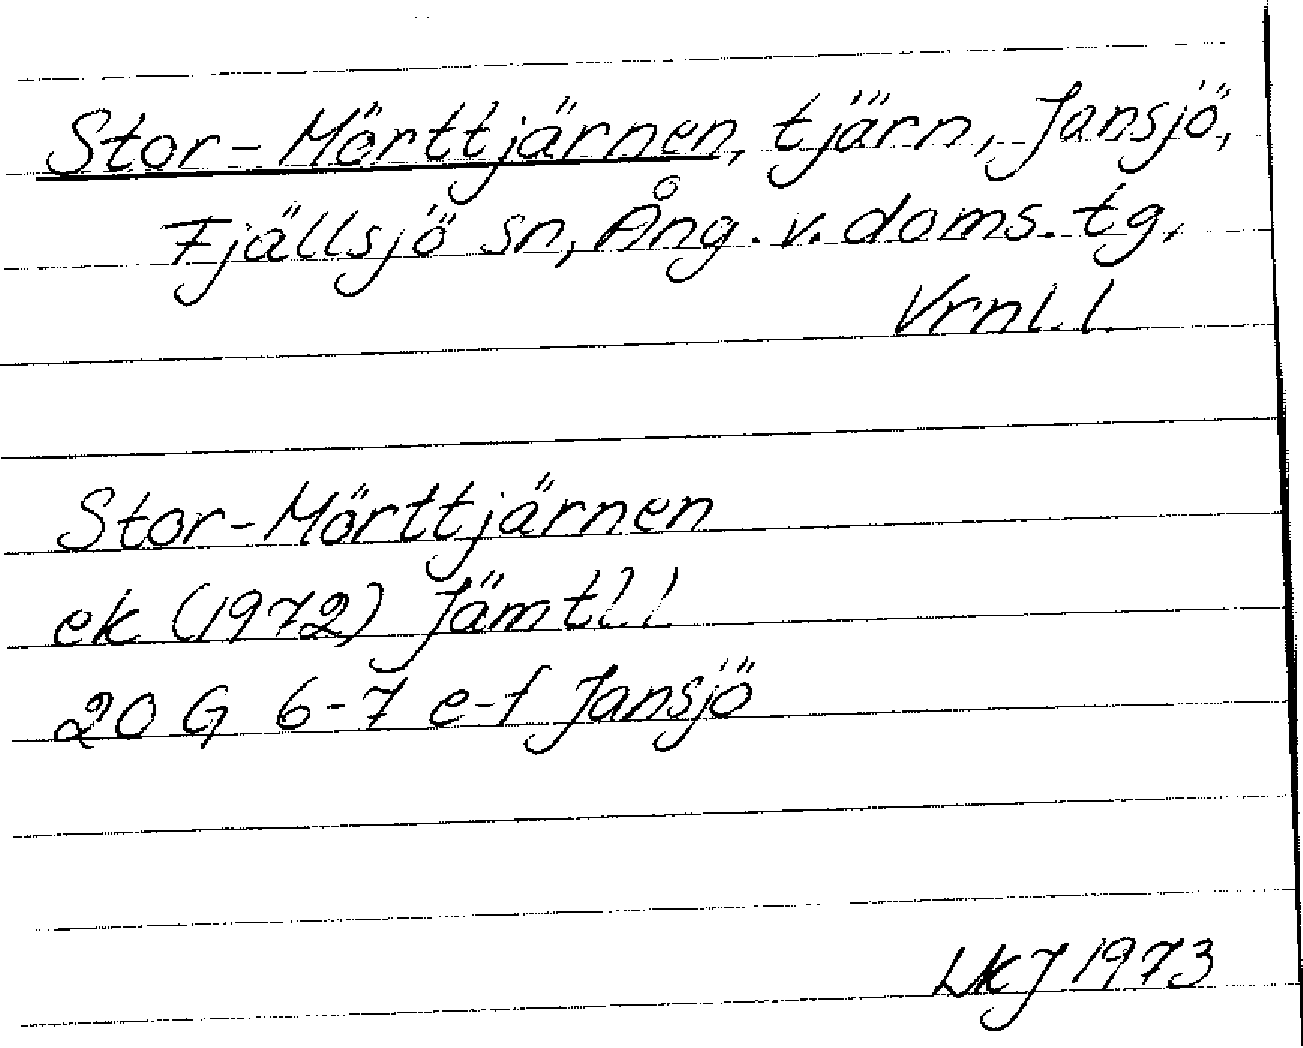 Stor-Mörttjärnen, tjärn, Jansjö,
Fjällsjö sn, Ång. v. doms. tg,
Vrnl. l.
Stor-Mörttjärnen
ek (1972) Jämtll
20 G 6-7 e-f Jansjö
LKJ 1973